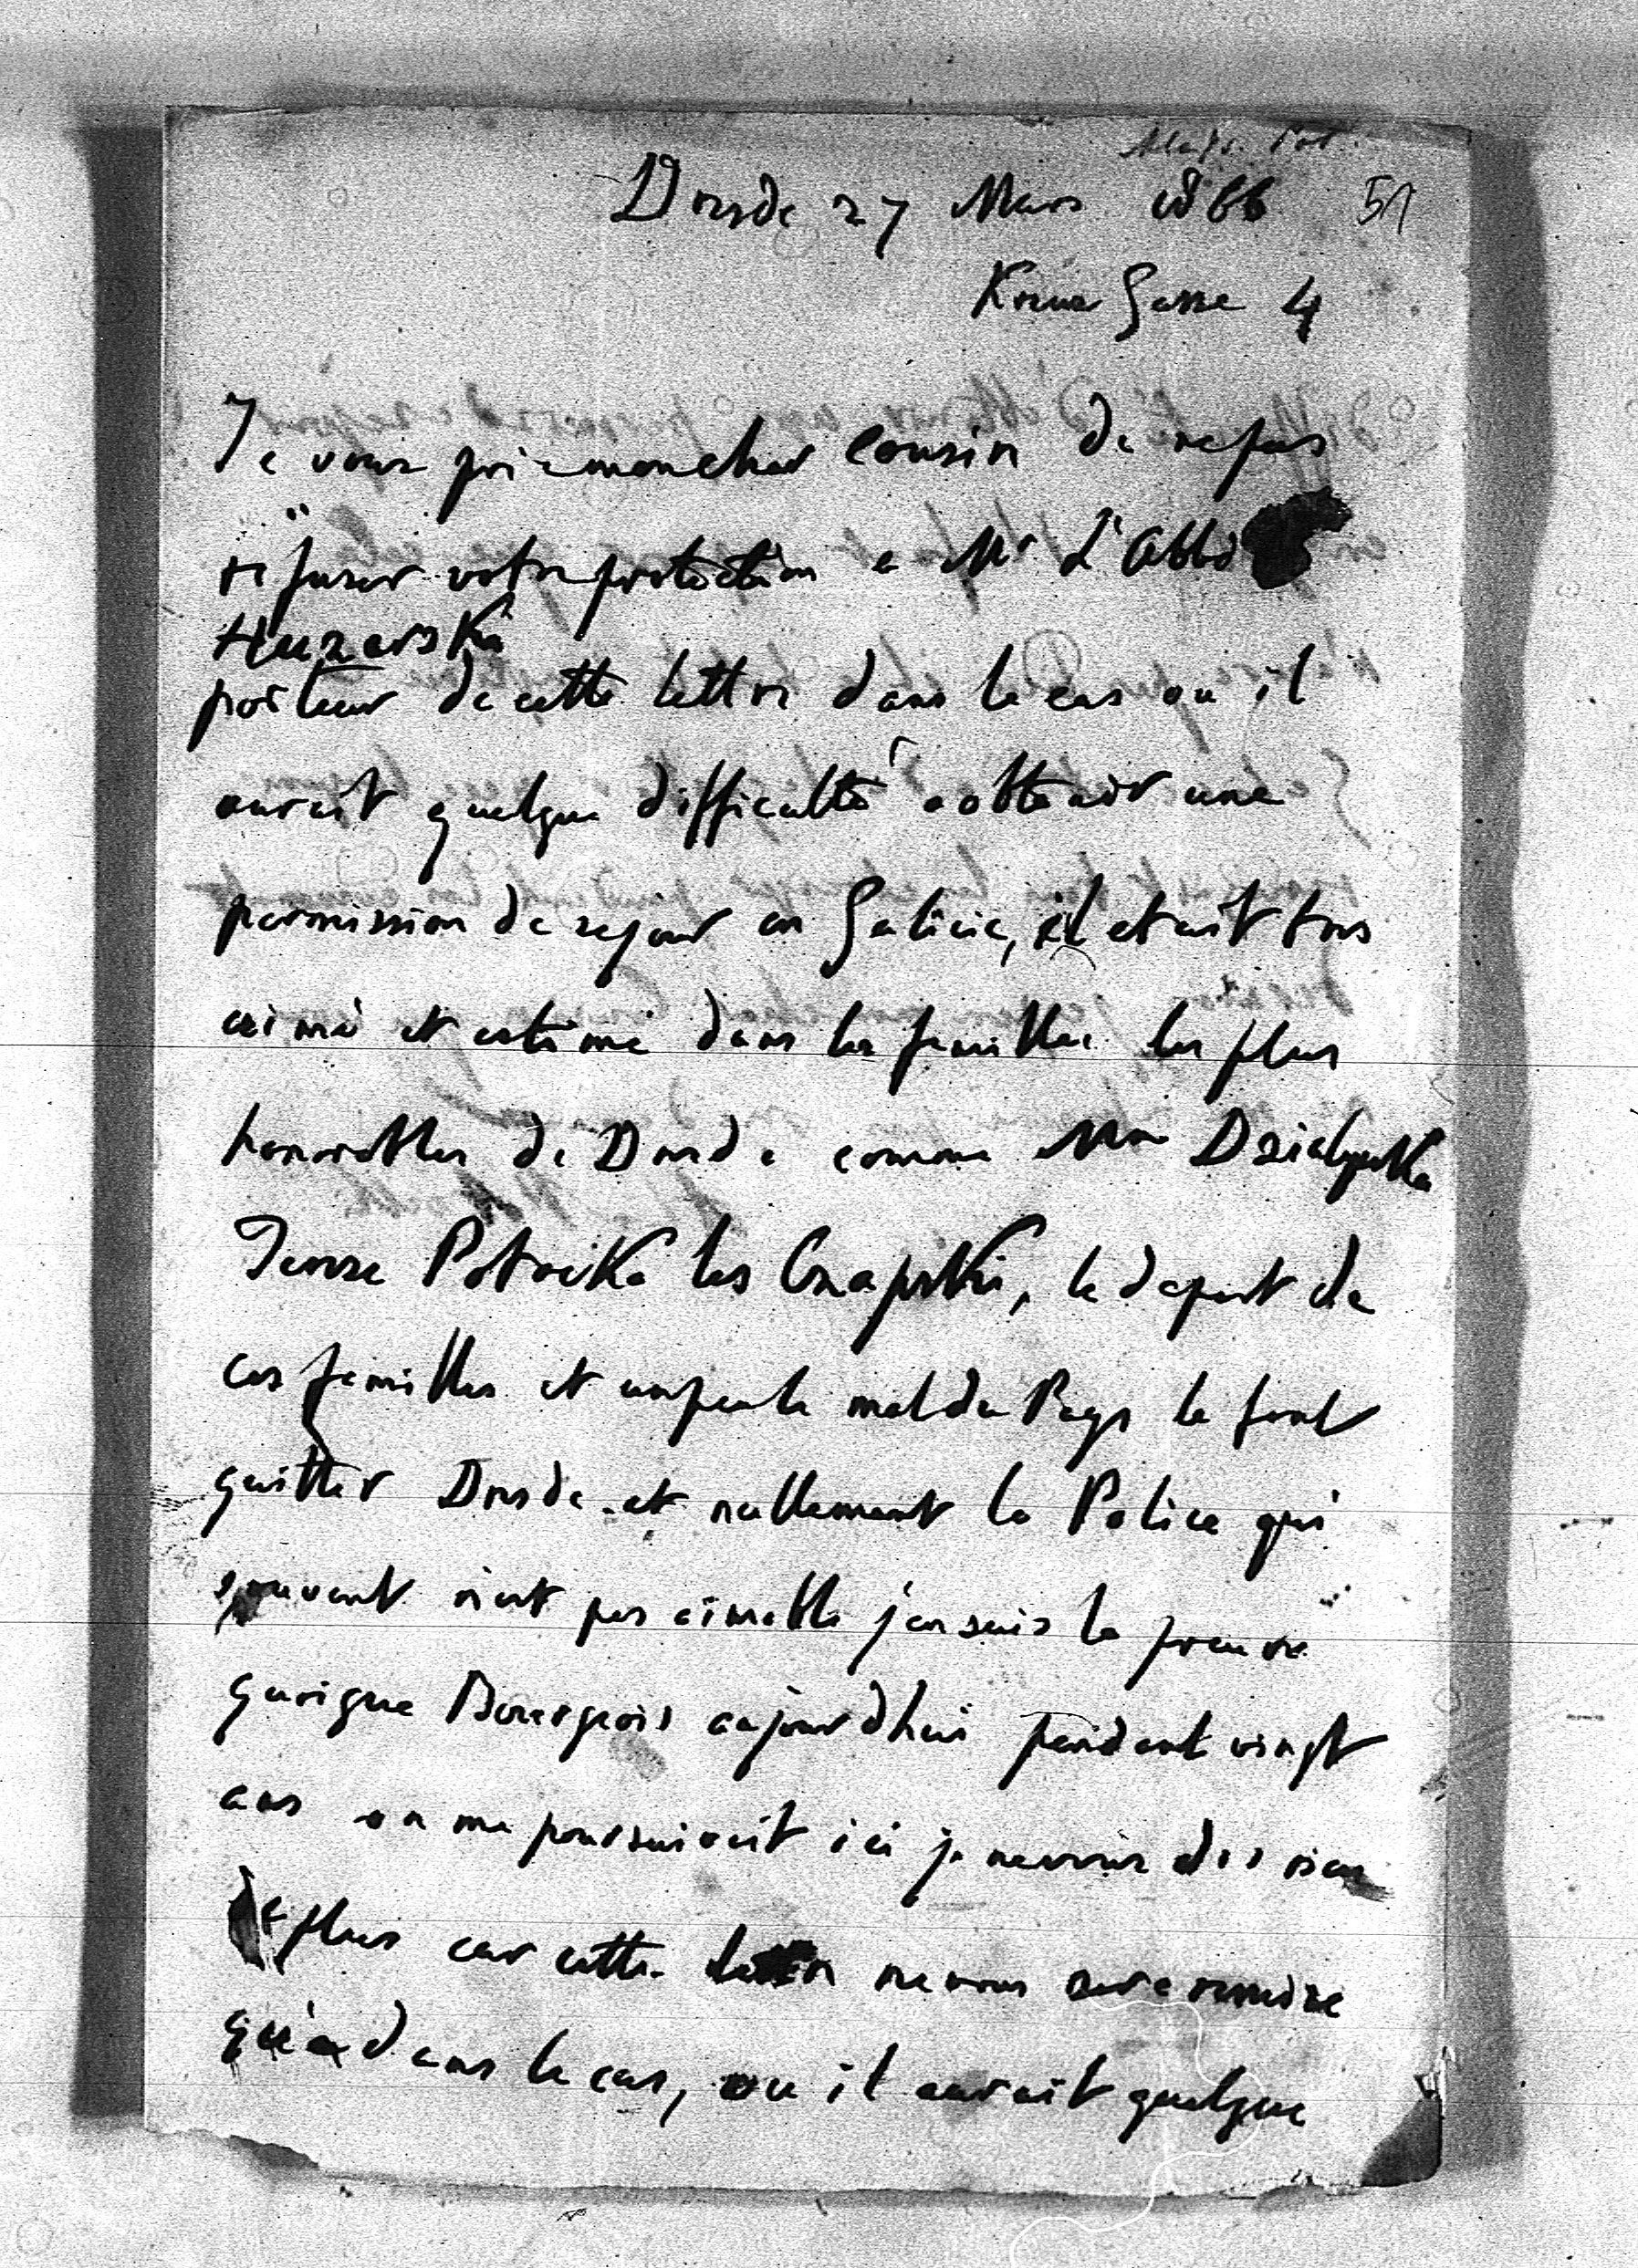 Dresde 27 Mars 1866 51
Gasse 4
Je vous prie mon cher cousin de ne pas
refuser votre protection a Mr L'Abbé
porteur de cette lettre dans le cas ou il
aurait quelque difficulté a obtenir une
permission de sejour en Galicie, il etait tres
aimé et estimé dans les familles les plus
honorables de Dresde comme Mme Dzialynska
Potocka les Czapski, le depart de
ces familles et un peu le mal du Pays le font
quitter Dresde et nullement la Police qui
souvent n'est pas aimable j'en suis la preuve
quoique Bourgeois aujourdhui pendant vingt
ans on me poursuivait ici je ne vous dis rien
de plus car cette lettre ne vous sera remise
que dans le cas, ou il aurait quelque